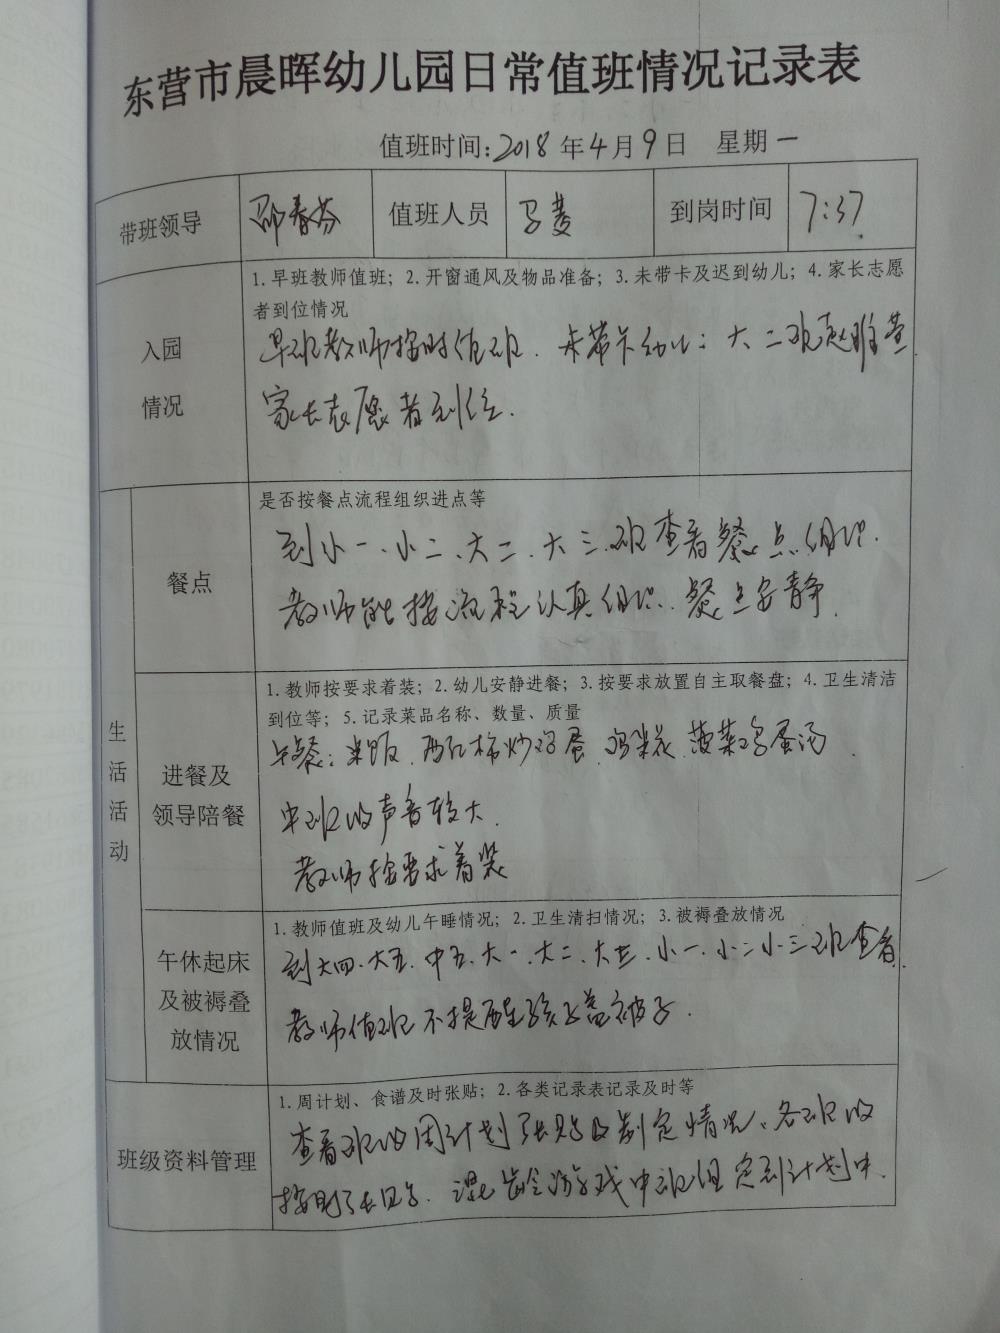 东营市晨晖幼儿园日常值班情况记录表
值班时间:2018年4月9日 星期一
带班领导 邵春芬 值班人员 马菱 到岗时间 7:37
1.早班教师值班；2.开窗通风及物品准备；3.未带卡及迟到幼儿；4.家长志愿
者到位情况
入园
情况
早班教师按时值班、未带卡幼儿：大二班赵雅萱
家长志愿者到位.
生活活动
是否按餐点流程组织进点等
餐点
到小一、小二、大二、大三班查看餐点组织.
教师能按流程认真组织、餐点安静.
1.教师按要求着装；2.幼儿安静进餐；3.按要求放置自主取餐盘；4.卫生清洁
到位等；5.记录菜品名称、数量、质量
进餐及
领导陪餐
午餐：米饭、西红柿炒鸡蛋、鸡米花、菠菜鸡蛋汤
中班的声音较大.
教师按要求着装
1.教师值班及幼儿午睡情况；2.卫生清扫情况；3.被褥叠放情况
午休起床
及被褥叠
放情况
到大四、大五、中五、大一、大二、大三、小一、小二小三班查看.
教师值班不提醒孩子盖被子.
1.周计划、食谱及时张贴；2.各类记录表记录及时等
班级资料管理
查看班的周计划张贴及制定情况、各班的
按时张贴. 混龄游戏中班组 定到计划中.